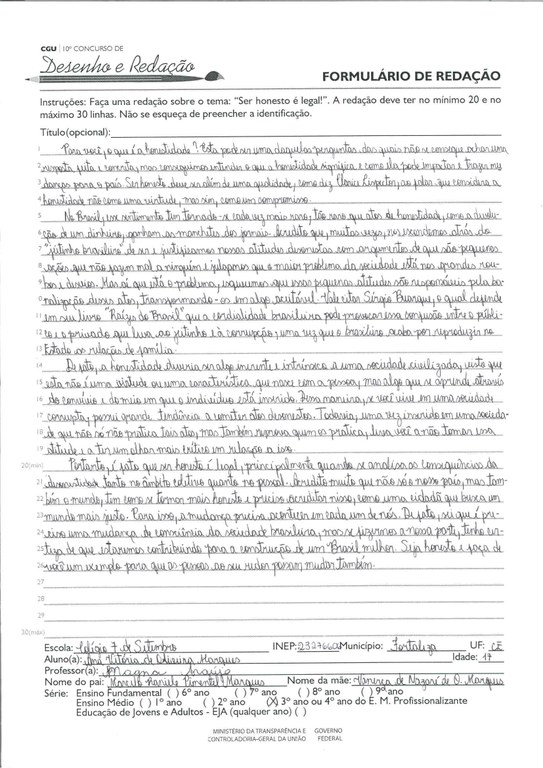 CGU | 10º CONCURSO DE
Desenho e Redação
FORMULÁRIO DE REDAÇÃO
Instruções: Faça uma redação sobre o tema: “Ser honesto é legal!”. A redação deve ter no mínimo 20 e no
máximo 30 linhas. Não se esqueça de preencher a identificação.
Título(opcional):
1 Para você, o que é a honestidade? Esta pode ser uma daquelas perguntas das quais não se consegue achar uma
2 resposta feita e correta, mas conseguimos entender o que a honestidade significa e como ela pode impactar e trazer mu
3 danças para o país. Ser honesto deve ser além de uma qualidade, como dez Clarice Lispector, ao falar que considera a
4 honestidade não como uma virtude, mas sim, como um compromisso.
5 No Brasil, esse sentimento tem tornado-se cada vez mais raro, tão raro que atos de honestidade, como a devolu-
6 ção de um dinheiro, ganham as manchetes dos jornais. Acredito que, muitas vezes, nos escondemos atrás do
7 "jeitinho brasileiro" de ser e justificamos nossas atitudes desonestas com argumentos de que são pequenas
8 ações que não fazem mal a ninguém e julgamos que o maior problema da sociedade está nos grandes rou-
9 bos e desvios. Mas aí que está o problema, esquecemos que essas pequenas atitudes são responsáveis pela ba-
10 nalização desses atos, transformando-os em algo aceitável. Vale citar Sérgio Buarque, o qual defende
11 em seu livro "Raízes do Brasil" que a cordialidade brasileira pode provocar essa confusão entre o públi-
12 co e o privado que leva ao jeitinho e à corrupção, uma vez que o brasileiro acaba por reproduzir no
13 Estado as relações de família.
14 De fato, a honestidade deveria ser algo inerente e intrínseco a uma sociedade civilizada, visto que
15 esta não é uma virtude ou uma característica que nasce com a pessoa, mas algo que se aprende através
16 do convívio e do meio em que o indivíduo está inserido. Dessa maneira, se você vive em uma sociedade
17 corrupta, possui grande tendência a cometer atos desonestos. Todavia, uma vez inserido em uma socieda-
18 de que não só não pratica tais atos, mas também reprova quem os pratica, leva você a não tomar essa
19 atitude e a ter um olhar mais crítico em relação a isso.
20(min) Portanto, é fato que ser honesto é legal, principalmente quando se analisa as consequências da
21 desonestidade tanto no âmbito coletivo quanto no pessoal. Acredito muito que não só nosso país, mas tam-
22 bém o mundo, tem como se tornar mais honesto e preciso acreditar nisso, como uma cidadã que busca um
23 mundo mais justo. Para isso, a mudança precisa acontecer em cada um de nós. De fato, sei que é pre-
24 ciso uma mudança de consciência da sociedade brasileira, mas se fizermos a nossa parte, tenho cer-
25 teza de que estaremos contribuindo para a construção de um Brasil melhor. Seja honesto e faça de
26 você um exemplo para que as pessoas ao seu redor possam mudar também.
27
28
29
30(máx)
Escola: Colégio 7 de Setembro INEP: Município: Fortaleza UF: CE
Aluno(a): Ana Vitória de Oliveira Marques Idade: 17
Professor(a): Magna Araújo
Nome do pai: Marcelo Pimentel Marques Nome da mãe: Vanessa de Nazaré de O. Marques
Série: Ensino Fundamental ( ) 6º ano ( ) 7º ano ( ) 8º ano ( ) 9º ano
Ensino Médio ( ) 1º ano ( ) 2º ano (X) 3º ano ou 4º ano do E. M. Profissionalizante
Educação de Jovens e Adultos - EJA (qualquer ano) ( )
MINISTÉRIO DA TRANSPARÊNCIA E GOVERNO
CONTROLADORIA-GERAL DA UNIÃO FEDERAL